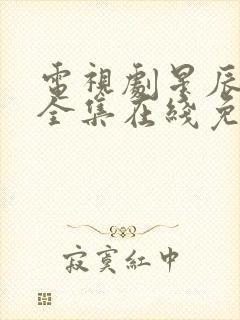 電視劇星辰
全集在綫免
寂寞紅中